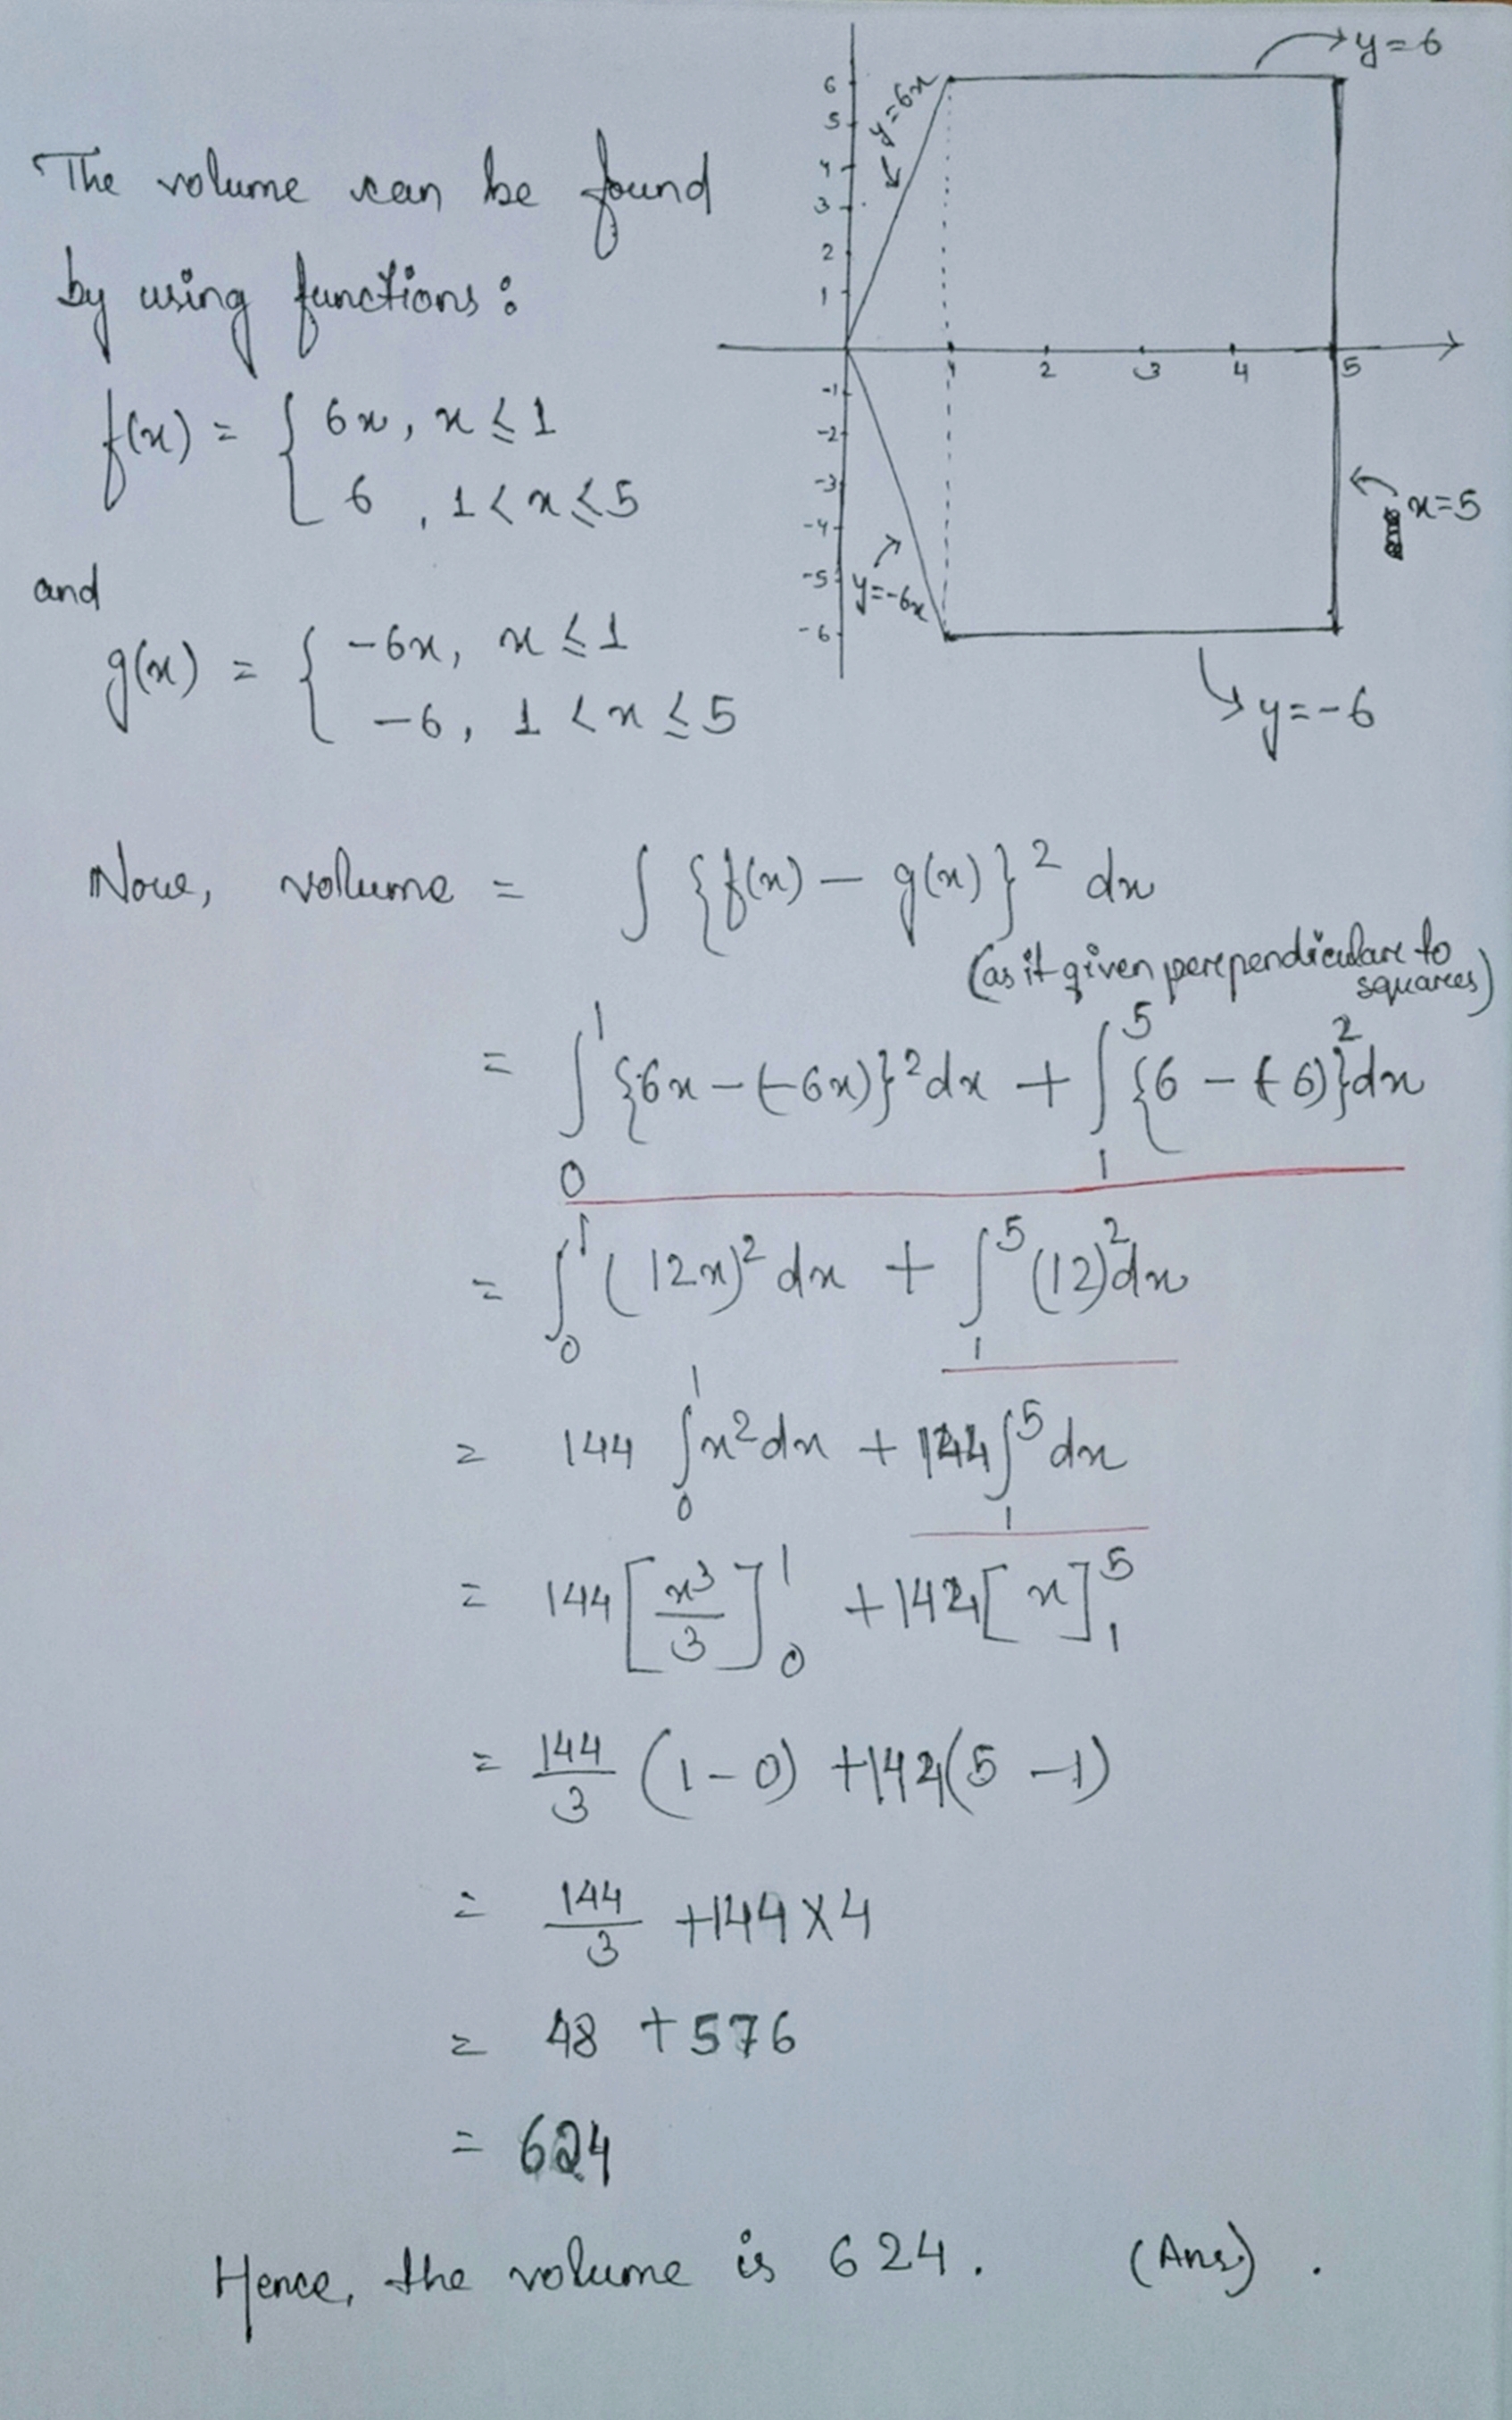 The volume can be found
by using functions:
f(x) = { 6x, x ≤ 1
6, 1 < x ≤ 5
and
g(x) = { -6x, x ≤ 1
-6, 1 < x ≤ 5
y=6
y=6x
6
5
4
3
2
1
1 2 3 4 5
-1
-2
-3
-4
-5
-6
x=5
y=-6x
y=-6
Now, volume = ∫ {f(x) - g(x)}² dx
(as it given perpendiculare to
squares)
= ∫₀¹ {6x-(-6x)}² dx + ∫₁⁵ {6-(-6)}² dx
= ∫₀¹ (12x)² dx + ∫₁⁵ (12)² dx
= 144 ∫₀¹ x² dx + 144 ∫₁⁵ dx
= 144 [x³/3]₀¹ + 144 [x]₁⁵
= 144/3 (1-0) + 144 (5-1)
= 144/3 + 144 X 4
= 48 + 576
= 624
Hence, the volume is 624. (Ans).